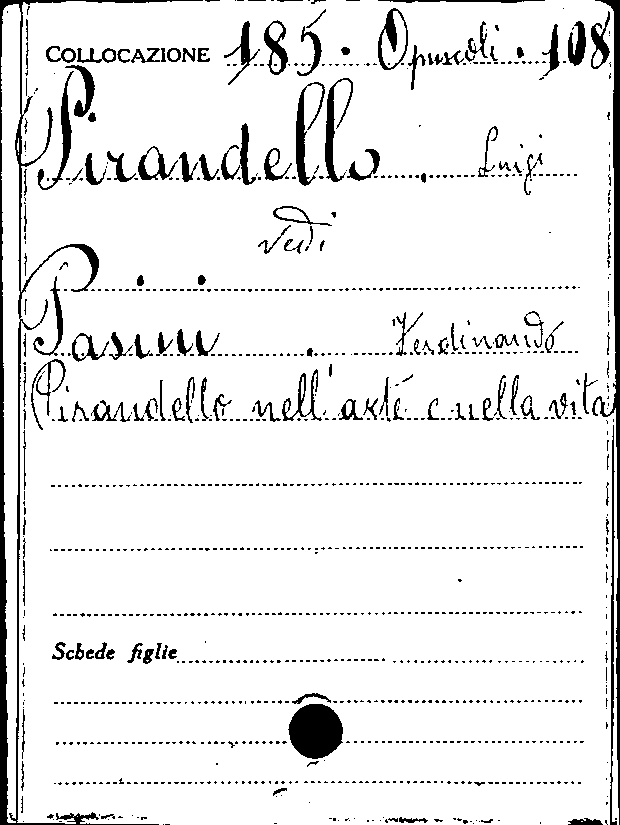 COLLOCAZIONE 185 · Opuscoli · 108
Pirandello . Luigi
vedi
Pasini . Ferdinando
Pirandello nell'arte e nella vita
Schede figlie